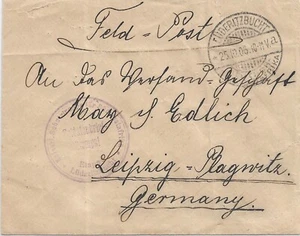 Feld-Post
LÜDERITZBUCHT
An das Versand-Geschäft
Mey & Edlich
Leipzig-Plagwitz.
Germany.